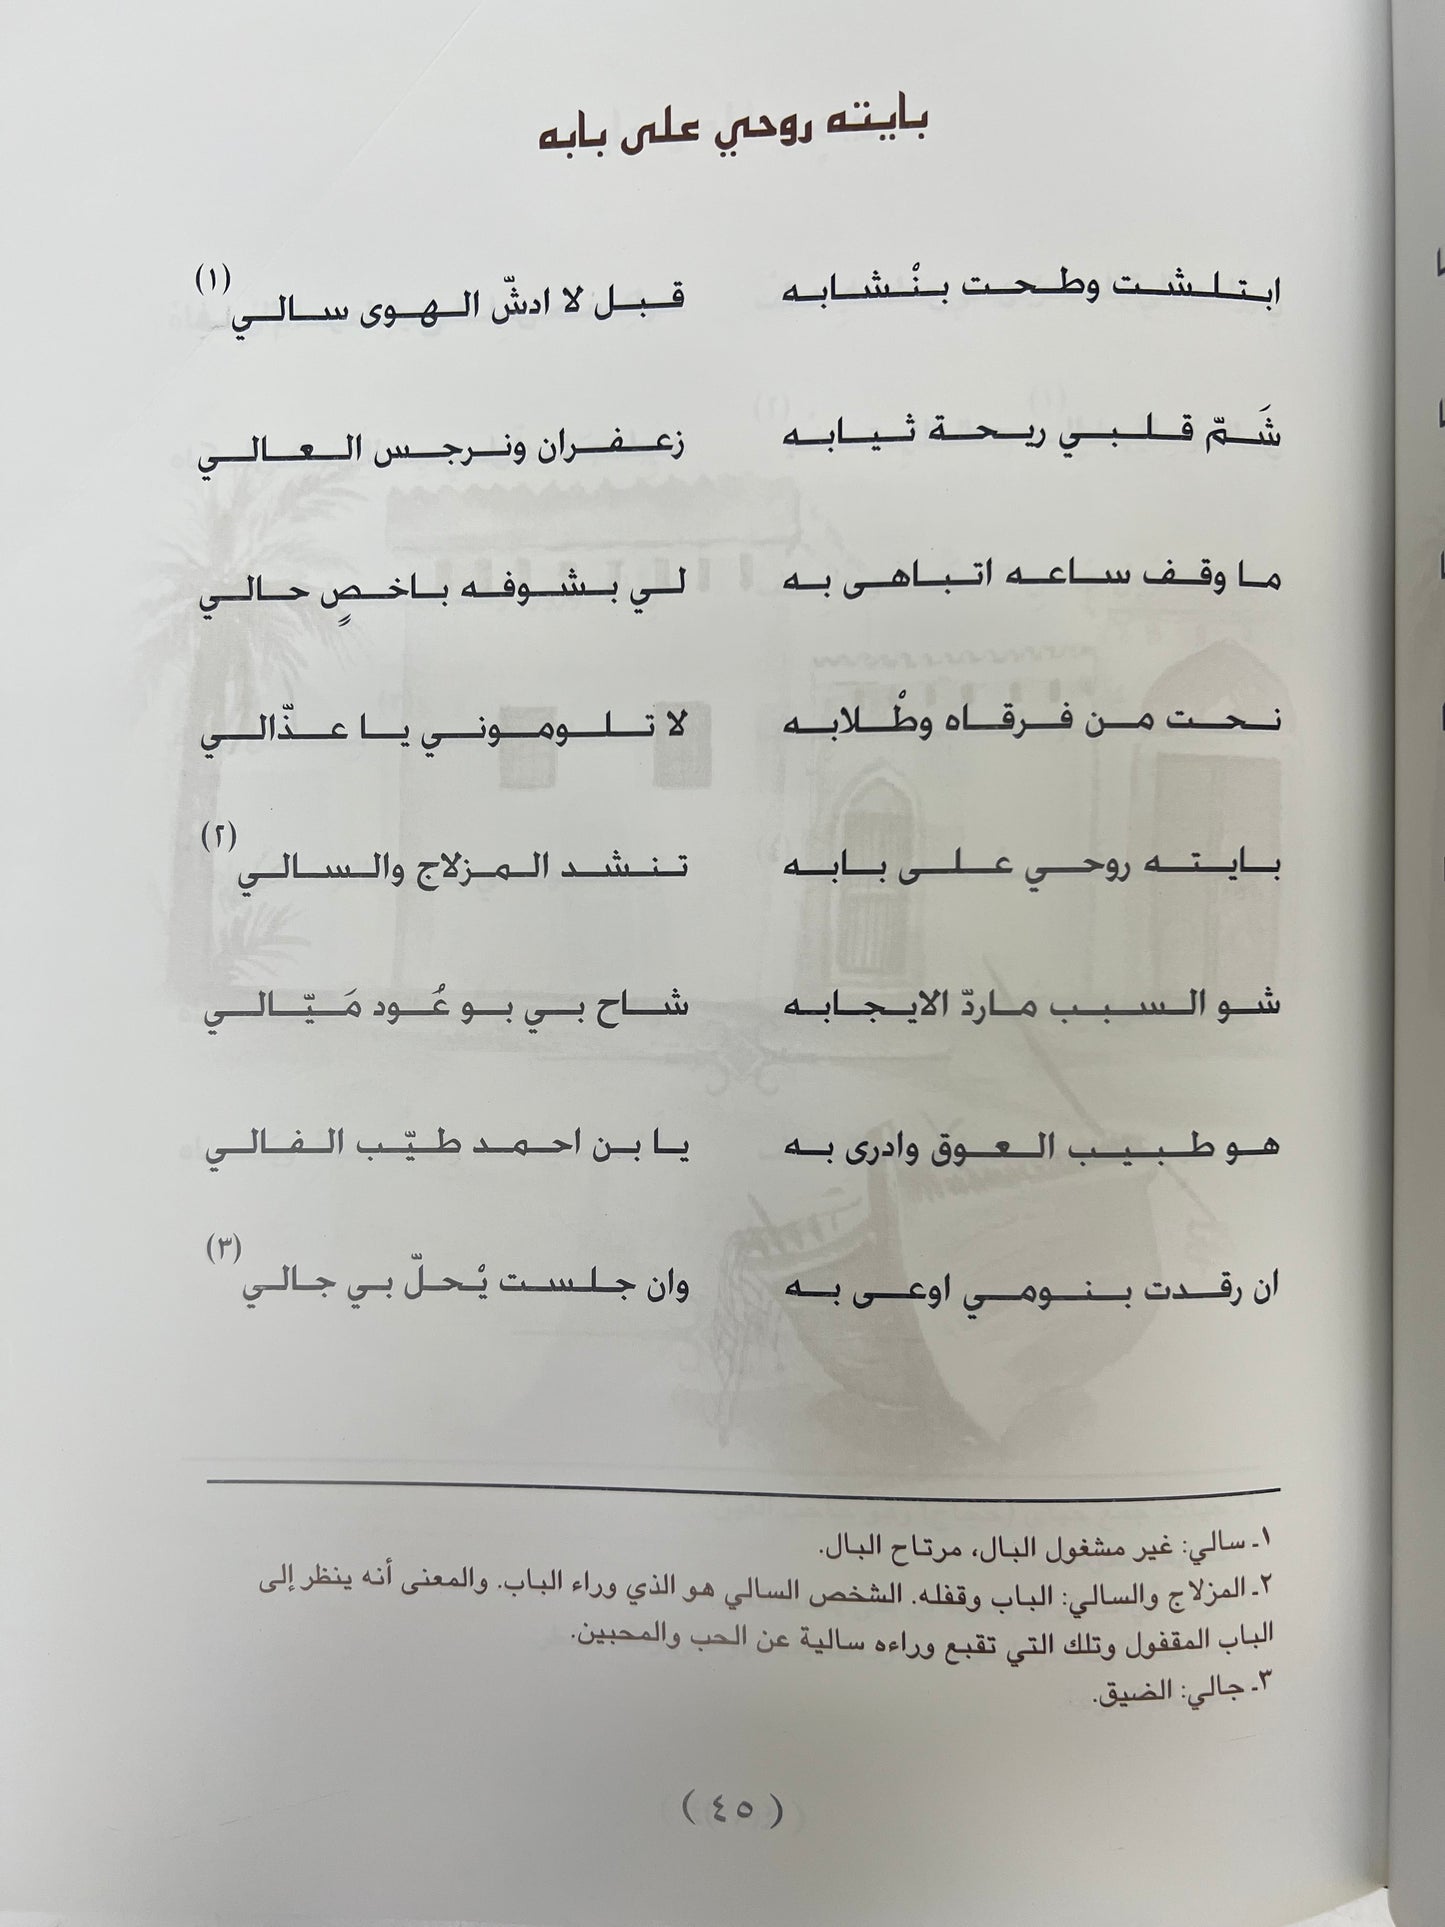 بايته روحي على بابه
ابتلشت وطحت بنْشابه قبل لا ادشّ الهوى سالي (١)
شَمّ قلبي ريحة ثيابه زعفران ونرجس العالي
ما وقف ساعه اتباهى به لي بشوفه باخصٍ حالي
نحت من فرقاه وطْلابه لا تلوموني يا عذّالي
بايته روحي على بابه تنشد المزلاج والسالي (٢)
شو السبب ماردّ الايجابه شاح بي بو عُود مَيّالي
هو طبيب العوق وادرى به يا بن احمد طيّب الفالي
ان رقدت بنومي اوعى به وان جلست يْحلّ بي جالي (٣)
١ـ سالي: غير مشغول البال، مرتاح البال.
٢ـ المزلاج والسالي: الباب وقفله. الشخص السالي هو الذي وراء الباب. والمعنى أنه ينظر إلى
الباب المقفول وتلك التي تقبع وراءه سالية عن الحب والمحبين.
٣ـ جالي: الضيق.
( ٤٥ )